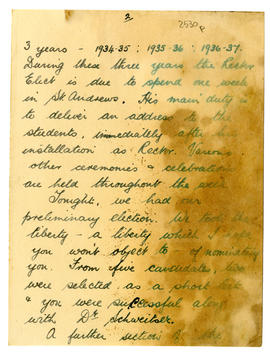 2
2530 P
3 years - 1934-35 : 1935-36 : 1936-37.
During these three years the Rector
Elect is due to spend one week
in St Andrews. His main duty is
to deliver an address to the
students, immediately after his
installation as Rector. Various
other ceremonies & celebrations
are held throughout the week.
Tonight, we had our
preliminary election. We took the
liberty - a liberty which I hope
you won't object to - of nominating
you. From five candidates, two
were selected as a short leet
& you were successful along
with Dr Schweitzer.
A further section of the